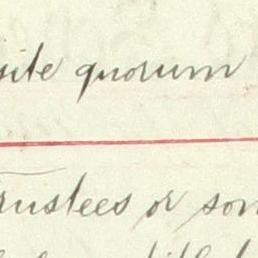 site quorum
rustees or som